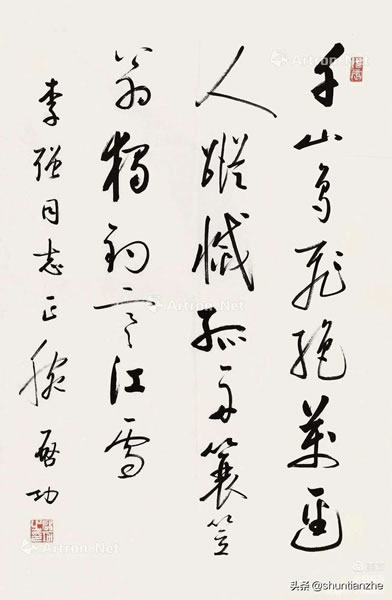 千山鳥飛絕萬逕
人蹤滅孤舟蓑笠
翁獨釣寒江雪
李强同志正腕 啟功
Artron.Net
Artron.Net
Artron.Net
Artron.Net
头条 @shuntianzhe